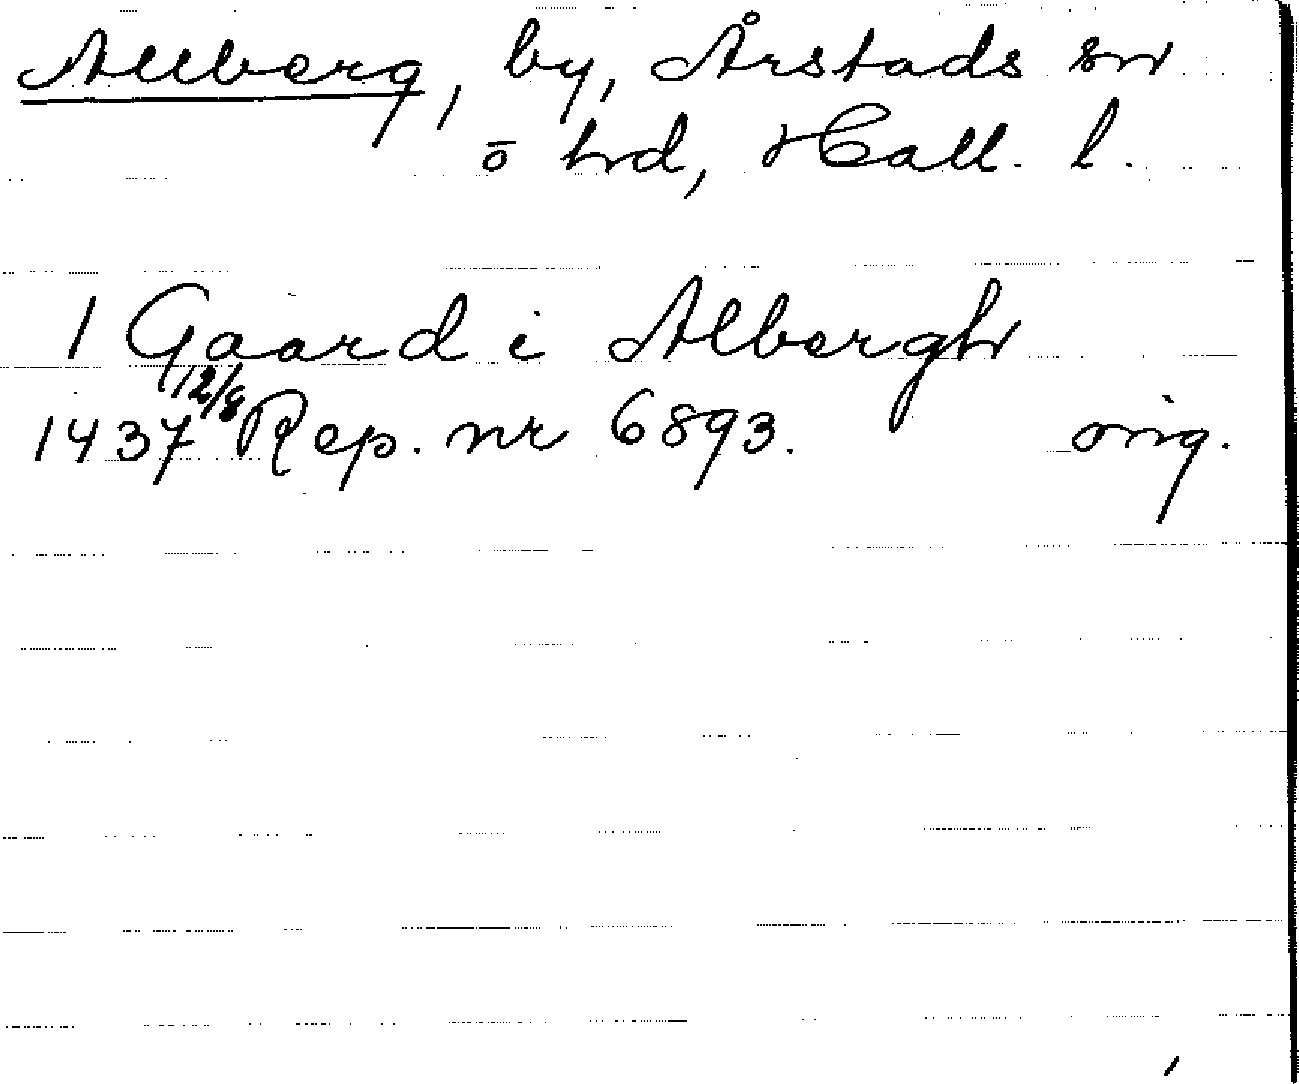 Allberg, by, Årstads sn
o hd, Hall. l.
1 Gaard i Albergh
1437 12/8 Rep. nr 6893. orig.